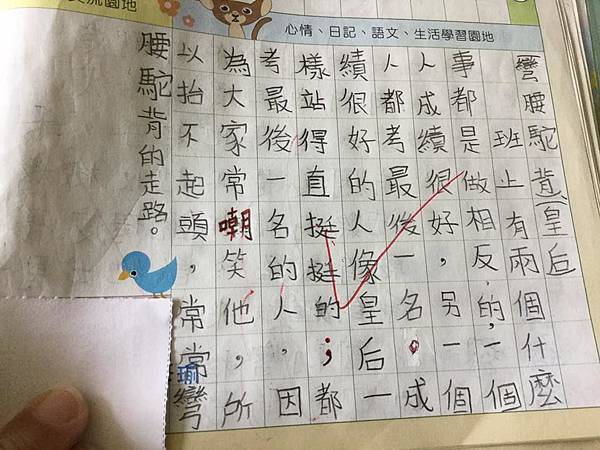 流園地
心情、日記、語文、生活學習園地
彎腰駝背、皇后
班上有兩個什麼
事都是做相反的,一個
人成績很好,另一個
人都考最後一名。成
績很好的人像皇后一
樣站得直挺挺的;都
考最後一名的人,因
為大家常嘲笑他,所
以抬不起頭,常常彎
腰駝背的走路。
瑜